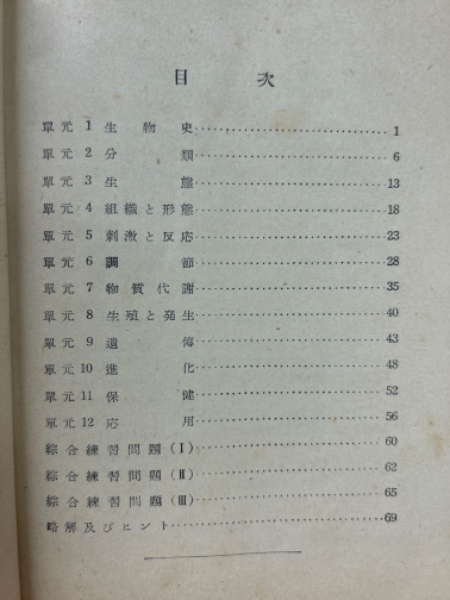 目次
單元 1 生物史 1
單元 2 分類 6
單元 3 生態 13
單元 4 組織と形態 18
單元 5 刺激と反応 23
單元 6 調節 28
單元 7 物質代謝 35
單元 8 生殖と発生 40
單元 9 遺傳 43
單元 10 進化 48
單元 11 保健 52
單元 12 応用 56
綜合練習問題(Ⅰ) 60
綜合練習問題(Ⅱ) 62
綜合練習問題(Ⅲ) 65
略解及びヒント 69